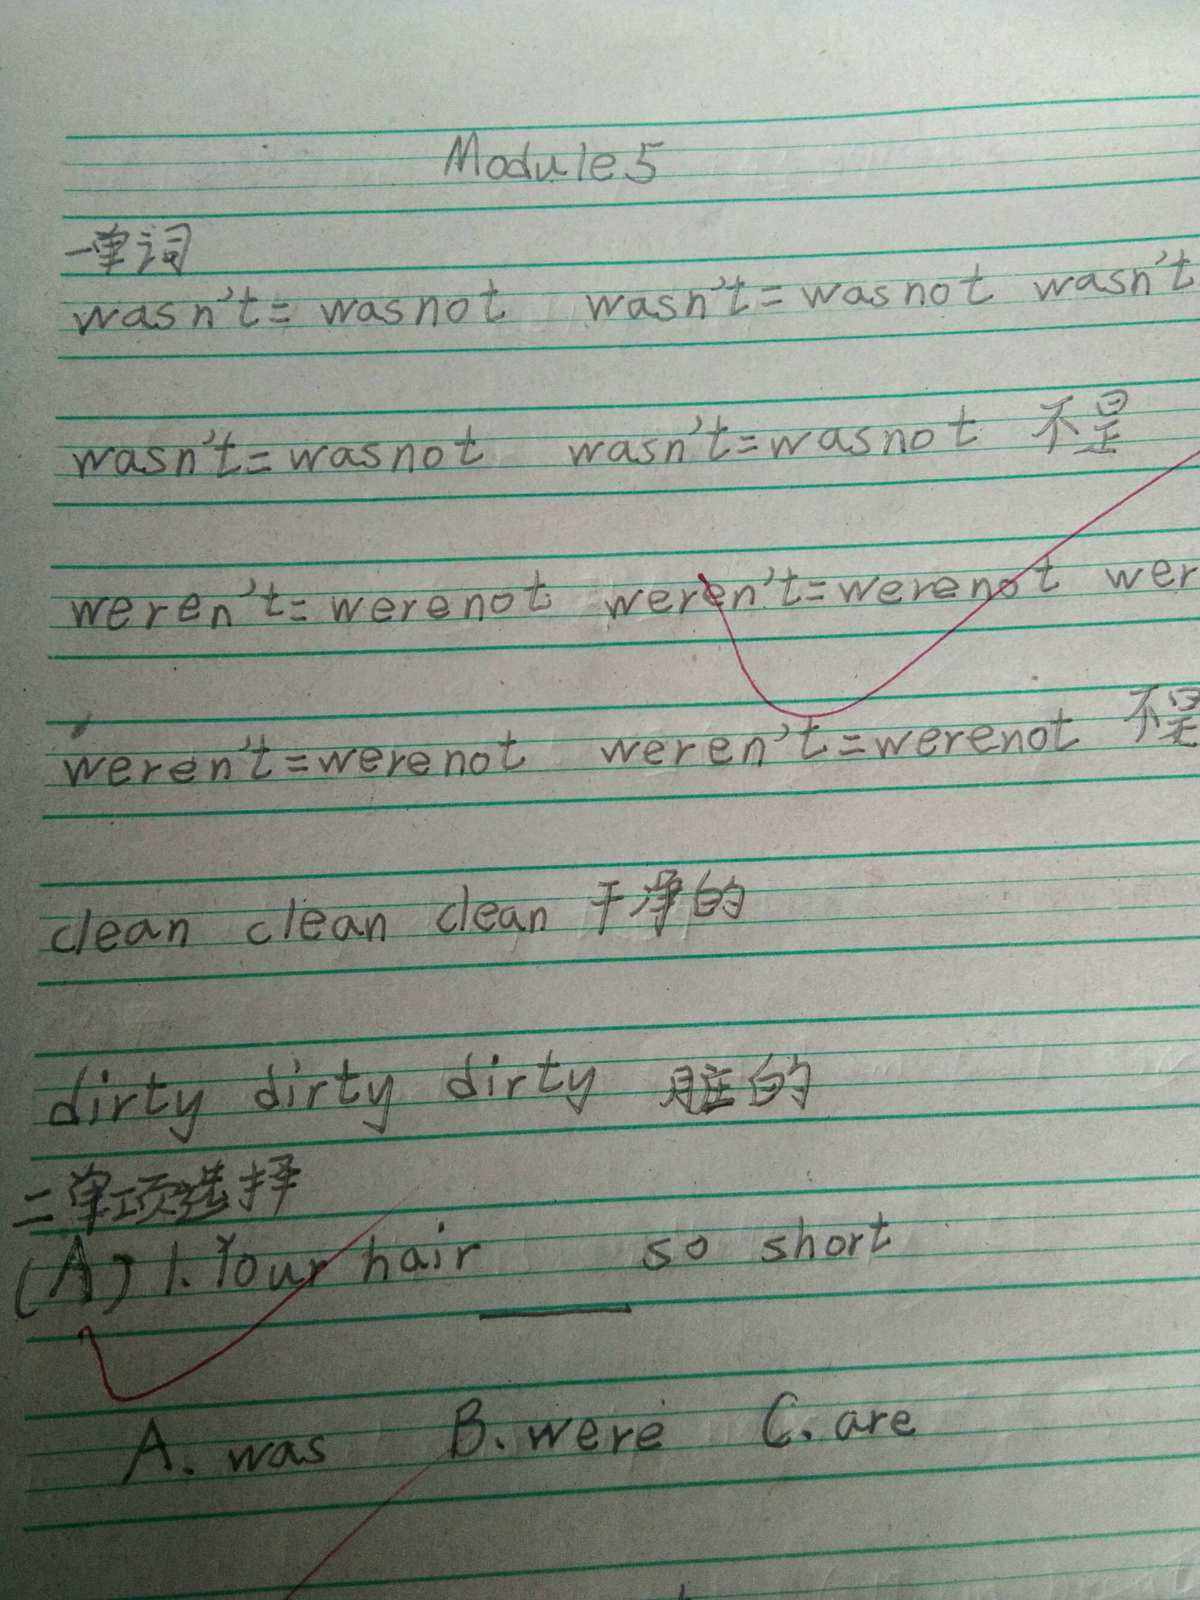 Module 5
一单词
wasn't = was not wasn't = was not wasn't
wasn't = was not wasn't = was not 不是
weren't = were not weren't = were not wer
weren't = were not weren't = were not 不是
clean clean clean 干净的
dirty dirty dirty 脏的
二单项选择
(A) 1. Your hair ____ so short
A. was B. were C. are